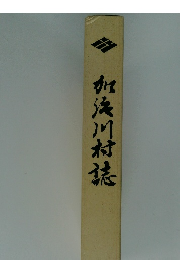 加茂川村誌